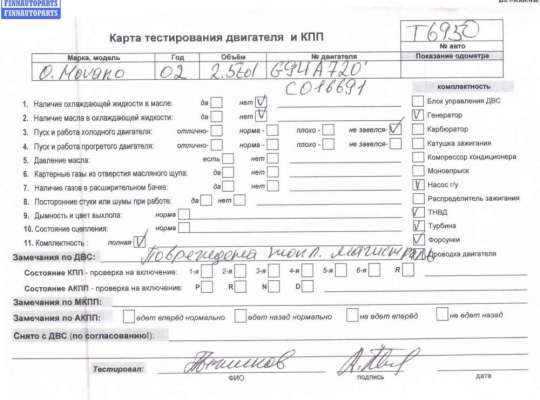 FINNAUTOPARTS
FINNAUTOPARTS
Карта тестирования двигателя и КПП
T6950
№ авто
Марка, модель Год Объём № двигателя Показание одометра
O. Movano 02 2.5td G9UA720
C016691
комплектность
1. Наличие охлаждающей жидкости в масле: да нет
2. Наличие масла в охлаждающей жидкости: да нет
3. Пуск и работа холодного двигателя: отлично- норма - плохо - не завелся-
4. Пуск и работа прогретого двигателя: отлично- норма - плохо - не завелся-
5. Давление масла: есть нет
6. Картерные газы из отверстия масляного щупа: да нет
7. Наличие газов в расширительном бачке: да нет
8. Посторонние стуки или шумы при работе: да нет
9. Дымность и цвет выхлопа: норма
10. Состояние сцепления: норма
11. Комплектность : полная
Блок управления ДВС
Генератор
Карбюратор
Катушка зажигания
Компрессор кондиционера
Моновпрыск
Насос г/у
Распределитель зажигания
ТНВД
Турбина
Форсунки
Проводка двигателя
Замечания по ДВС: Повреждена топл. магистраль
Состояние КПП - проверка на включение: 1-я 2-я - 3-я - 4-я - 5-я - 6-я - R -
Состояние АКПП - проверка на включение: P R N D
Замечания по МКПП:
Замечания по АКПП: едет вперёд нормально едет назад нормально не едет вперёд не едет назад
Снято с ДВС (по согласованию!):
Тестировал:
ФИО подпись дата